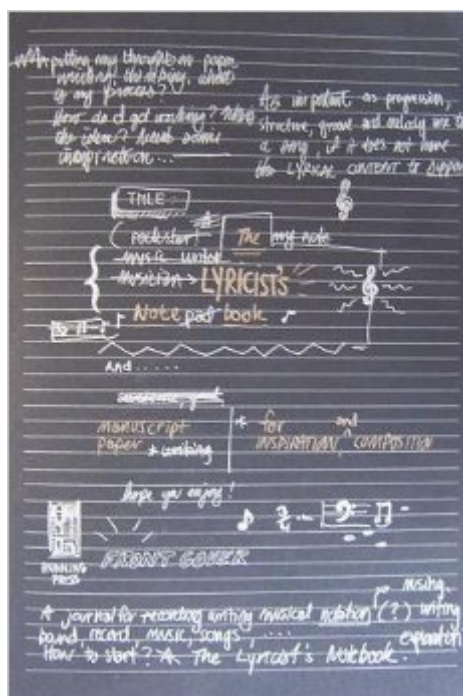 putting my thoughts on paper
my process?
How do I get writing?
the idea? Need some
inspiration...
As important as progression,
structure, groove and melody are to
a song, if it does not have
the LYRICAL CONTENT to support
TITLE
(rockstar) The my note
music writer
musician > LYRICIST'S
Note pad book
And .....
manuscript * for and
paper + writing INSPIRATION, ^ COMPOSITION
hope you enjoy!
RUNNING
PRESS
FRONT COVER
A journal for recording writing musical notation (?) writing
band, record, music, songs, .....
How to start? A The Lyricist's Notebook.